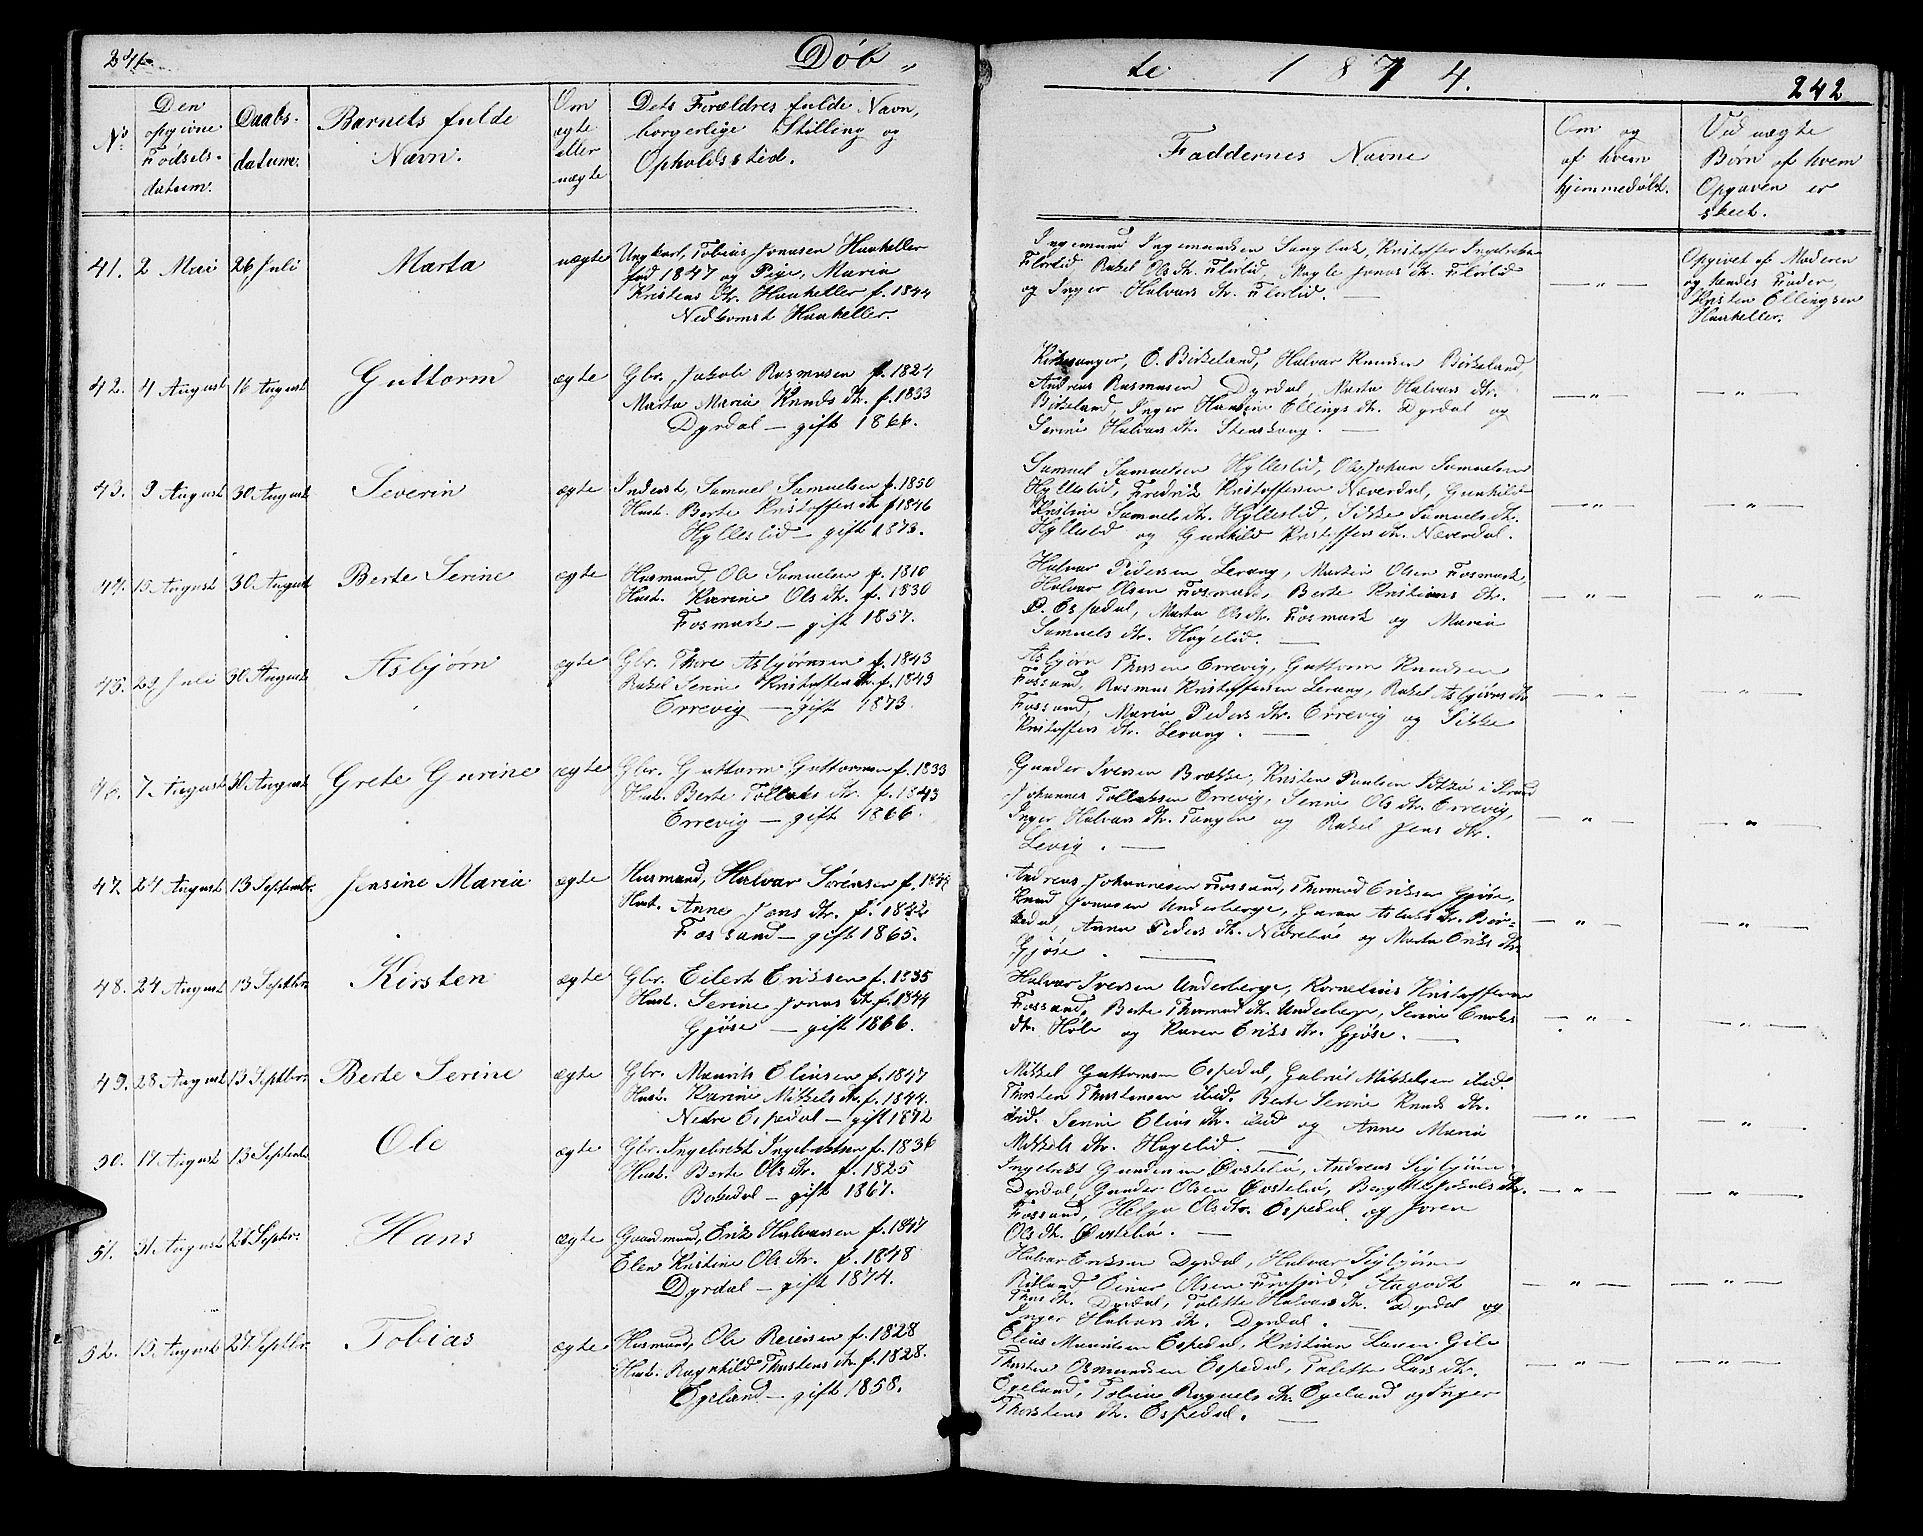 241
Døb „
te 1874.
242
No
Den opgivne Fødsels- datum.
Daabs- datum.
Barnets fulde Navn.
Om ægte eller uægte
Dets Forældres fulde Navn, borgerlige Stilling og Opholdssted.
Faddernes Navne
Om og af hvem hjemmedøbt.
Ved uægte Børn af hvem Opgaven er skeet.
41. 2 Mai 26 Juli Marta uægte Ungkarl, Tobias Jonasen Haukeller
fød 1847 og Pige, Maria
Kristens Dtr. Haukeller f. 1844
Nedkomst Haukeller.
Ingemund Ingemundsen Kristoffer
Flørlid Rakel Ols Dtr. Flørlid, Jonas Dtr. Flørlid
og Inger Halvars Dtr. Flørlid. —
— „ —
Opgivet af Moderen
og hendes Fader,
Kristen Ellingsen
Haukeller.
42. 4 August 16 August Guttorm ægte Gbr. Jakob Rasmusen f. 1824
Marta Maria Knuds Dtr. f. 1833
Dyrdal — gift 1866.
Kirkesanger, E. Birkeland, Halvar Knudsen Birkeland,
Andreas Rasmusen Dyrdal, Marta Halvars Dtr.
Birkeland, Inger Hansine Ellings Dtr. Dyrdal og
Serine Halvars Dtr. Stenskaug. —
— „ — — „ —
43. 9 August 30 August Severin ægte Inderst, Samuel Samuelsen f. 1850
Hust. Berte Kristoffers Dtr f 1846
Hylleslid — gift 1873.
Samuel Samuelsen Hylleslid, Ole Johan Samuelsen
Hylleslid, Fredrik Kristoffersen Næverdal, Gunhild
Kristine Samuels Dtr. Hylleslid, Sikke Samuels Dtr.
Hylleslid og Gunhild Kristoffers Dtr. Næverdal.
— „ — — „ —
44. 15 August 30 August Berte Serine ægte Husmand, Ole Samuelsen f. 1810
Hust. Karine Ols Dtr. f. 1830
Fosmark — gift 1857.
Halvar Pedersen Lerang, Martin Olsen Fosmark,
Halvar Olsen Fosmark, Berte Kristians Dtr.
Ø. Espedal, Marta Ols Dtr. Fosmark og Maria
Samuels Dtr. Høgelid. —
— „ — — „ —
45. 29 Juli 30 August Asbjørn ægte Gbr. Thore Asbjørnsen f. 1843
Rakel Serine Kristoffers Dtr. f. 1849
Errevig — gift 1873.
Asbjørn Thorsen Errevig, Guttorm Knudsen
Fossand, Rasmus Kristoffersen Lerang, Rakel Asbjørns Dtr
Fossand, Maria Peders Dtr. Errevig og Sikke
Kristoffers Dtr. Lerang. —
— „ — — „ —
46. 7 August 30 August Grete Gurine ægte Gbr. Guttorm Guttormsen f. 1833
Hust. Berte Tollaks Dtr. f. 1843
Errevig — gift 1866.
Gunder Iversen Brække, Kristen Paulsen i Strand
Johannes Tollaksen Errevig, Serine Ols Dtr. Errevig,
Inger Halvars Dtr. Tangen og Rakel Jens Dtr.
Levig. —
— „ — — „ —
47. 24 August 13 Septembr. Jensine Maria ægte Husmand, Halvar Sørensen f.
Hust. Anne Jons Dtr. f. 1842
Fossand — gift 1865.
Andreas Johannesen Fossand, Thormod Eriksen Gjøse,
Knud Jonasen Underberge, Guran Aslaks Dtr. Ber-
kedal, Anna Peders Dtr. Nedrebø og Marta Eriks Dtr
Gjøse. —
— „ — — „ —
48. 24 August 13 Septbr. Kirsten ægte Gbr. Eilert Eriksen f. 1835
Hust. Serine Jonas Dtr. f. 1844
Gjøse — gift 1866.
Halvar Iversen Underberge, Kornelius Kristoffersen
Fossand, Berte Thormods Dtr. Underberge, Serine Enoks
Dtr. Høle og Karen Eriks Dtr. Gjøse. —
— „ — — „ —
49. 28 August 13 Septbr. Berte Serine ægte Gbr. Maurits Eliasen f. 1847
Hust. Karine Mikkels Dtr. f. 1844.
Nedre Espedal — gift 1872
Mikkel Guttormsen Espedal, Gabriel Mikkelsen ibid.
Thorsten Thorstensen ibid. Berte Serine Knuds Dtr.
ibid. Serine Elias Dtr. ibid og Anne Maria
Mikkels Dtr. Høgelid. —
— „ — — „ —
50. 17 August 13 Septemb. Ole ægte Gbr. Ingebrikt Ingebriktsen f. 1836
Hust. Berte Ols Dtr. f. 1825
Berkedal — gift 1867.
Ingebrikt Gundersen Øvstebø, Andreas Sigbjørns.
Dyrdal, Gunder Olsen Øvstebø, Jakobs Dtr.
Fossand, Helga Ols Dtr. Espedal og Joren
Ols Dtr. Øvstebø. —
— „ — — „ —
51. 31. August 27 Septbr. Hans ægte Gaardmand, Erik Halvarsen f. 1847
Elen Kristine Ols Dtr. f. 1848
Dyrdal — gift 1874.
Halvar Eriksen Dyrdal, Halvar Sigbjørnsen
Einar Olsen Frafjord,
Thors Dtr. Dyrdal, Tolette Halvars Dtr. Dyrdal og
Inger Halvars Dtr. Dyrdal. —
— „ — — „ —
52. 15 August 27 Septbr. Tobias ægte Husmand, Ole Reiersen f. 1828
Hust. Ragnhild Thorstens Dtr f. 1828.
Egeland — gift 1858.
Elias Mauritsen Espedal, Kristian Larsen Gilje
Thorsten Osmundsen Espedal, Tolette Lars Dtr.
Egeland, Tobine Raguels Dtr. Egeland og Inger
Thorstens Dtr. Espedal. —
— „ — — „ —